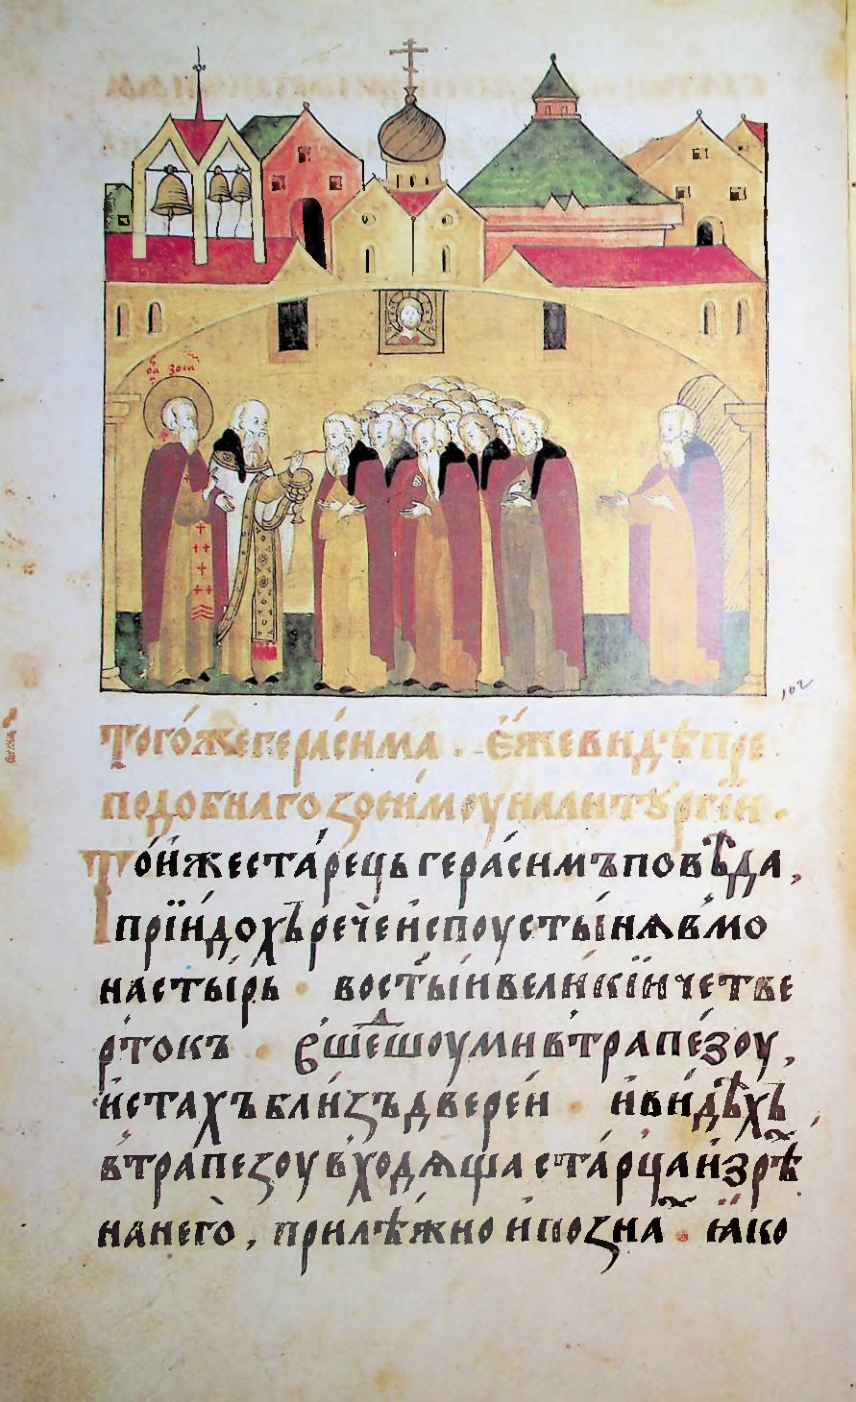 ѻ҃а зоси
102
Того́же гера́сима . Е҆́же видѣ пре
подобнаго зоси́моу на литꙋргі́и .
То́и же ста́рець гера́симъ повѣ́да ,
прїи́дохъ рече и҆с поусты́нѧ в мо
насты́рь · во ст҃ы́и вели́кїи четве
рто́къ · вше́шоу ми в трапе́зоу ,
и҆ стахъ бли́зъ двере́и · и҆ ви́дѣхъ
в трапезоу в́ходѧща ста́рца и҆ зрѣ
на него̀ , прилѣ́жно и҆ позна · ꙗ҆́ко